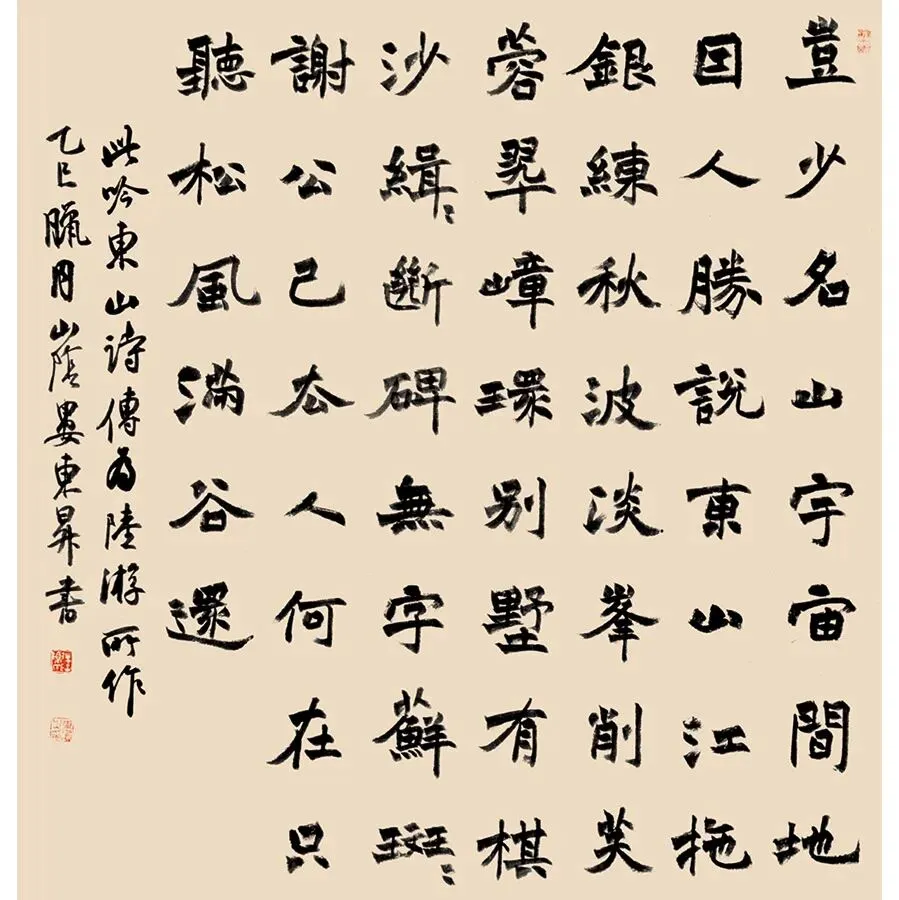 豈少名山宇宙間地
因人勝說東山江拖
銀練秋波淡峯削芙
蓉翠嶂環別墅有棋
沙緝〻斷碑無字蘚斑〻
謝公已去人何在只
聽松風滿谷還
此吟東山詩傳為陸游所作
乙巳臘月山陰婁東昇書